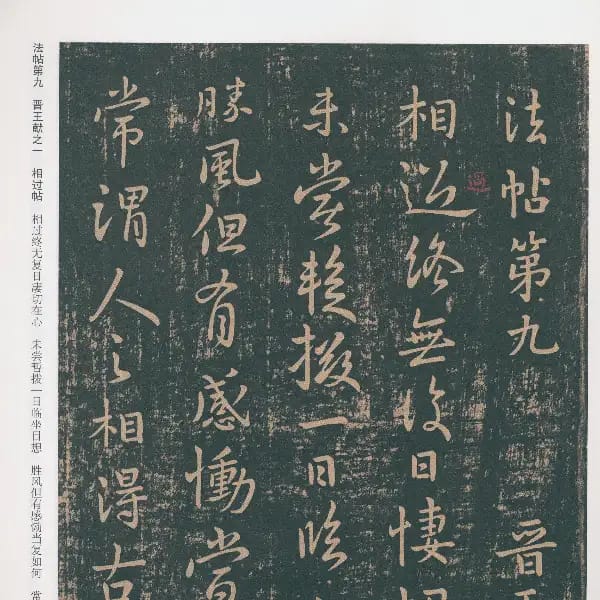 法帖第九　晋
相過終無復日悽切
未嘗暫撥一日臨
勝風但有感慟當
常謂人之相得古
過
法帖第九　晋王献之一　相过帖　相过终无复日凄切在心　未尝暂拨一日临坐目想　胜风但有感恸当复如何　常